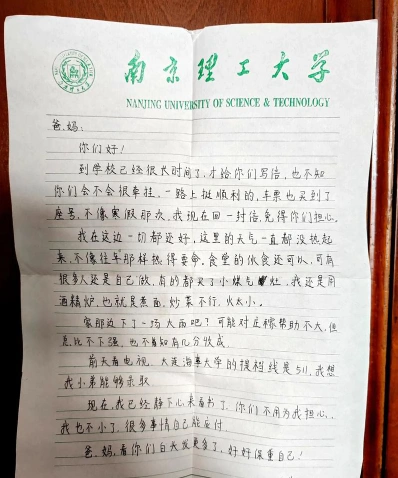 南京理工大学
NANJING UNIVERSITY OF SCIENCE & TECHNOLOGY
爸、妈：
你们好！
到学校已经很长时间了，才给你们写信，也不知
你们会不会很牵挂。一路上挺顺利的，车票也买到了
座号，不像寒假那次，我现在回一封信，免得你们担心。
我在这边一切都还好，这里的天气一直都没热起
来，不像往年那样热得要命。食堂的伙食还可以，可有
很多人还是自己做，有的都买了小煤气灶，我还是用
酒精炉，也就是煮面，炒菜不行，火太小。
家那边下了一场大雨吧？可能对庄稼帮助不大，但
总比不下强，也不知有几分收成。
前天看电视，大连海事大学的提档线是511，我想
我小弟能够录取
现在，我已经静下心来看书了，你们不用为我担心，
我也不小了，很多事情自己能应付。
爸、妈，看你们白头发更多了，好好保重自己！